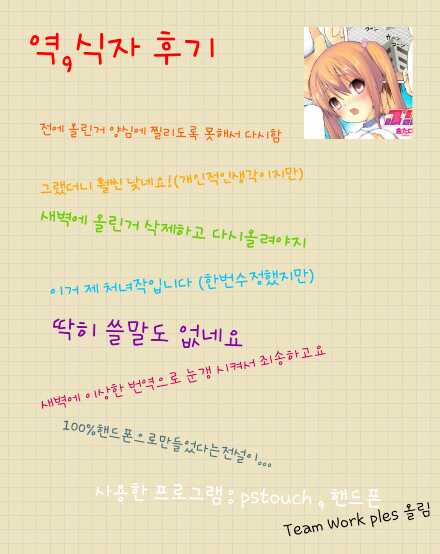 역,식자 후기
전에 올린거 양심에 찔리도록 못해서 다시함
그랬더니 훨씬 낫네요!(개인적인생각이지만)
새벽에 올린거 삭제하고 다시올려야지
이거 제 처녀작입니다 (한번수정했지만)
딱히 쓸말도 없네요
새벽에 이상한 번역으로 눈갱 시켜서 죄송하고요
100%핸드폰으로만들었다는전설이...
사용한 프로그램: pstouch , 핸드폰
Team Work ples 올림